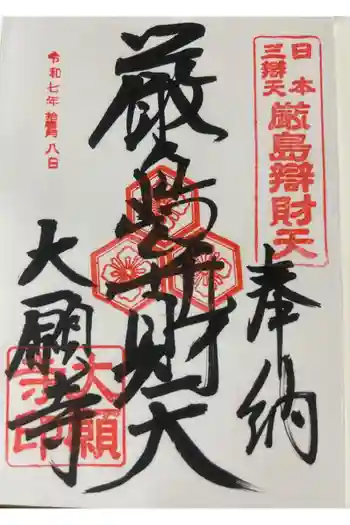 日本三辯天
厳島辯財天
奉納
厳島弁財天
大願寺
大願寺印
令和七年 八日